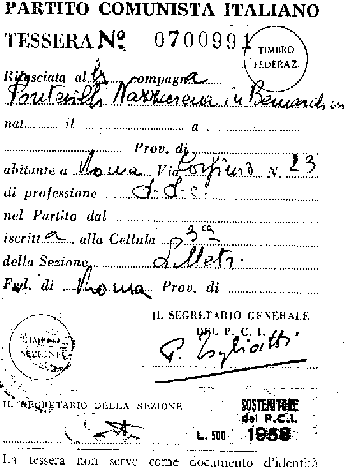 PARTITO COMUNISTA ITALIANO
TESSERA No 0700991
TIMBRO
FEDERAZ.
Rilasciata alla compagna
Nazzarena in
nat il a
Prov. di
abitante a Roma Via N. 23
di professione
nel Partito dal
iscritta alla Cellula 3a
della Sezione
Fed. di Roma Prov. di
IL SEGRETARIO GENERALE
DEL P. C. I.
P. Togliatti
TIMBRO
SEZIONE
IL SEGRETARIO DELLA SEZIONE
SOSTENITORE
del P.C.I.
L. 500 1958
La tessera non serve come documento d'identità